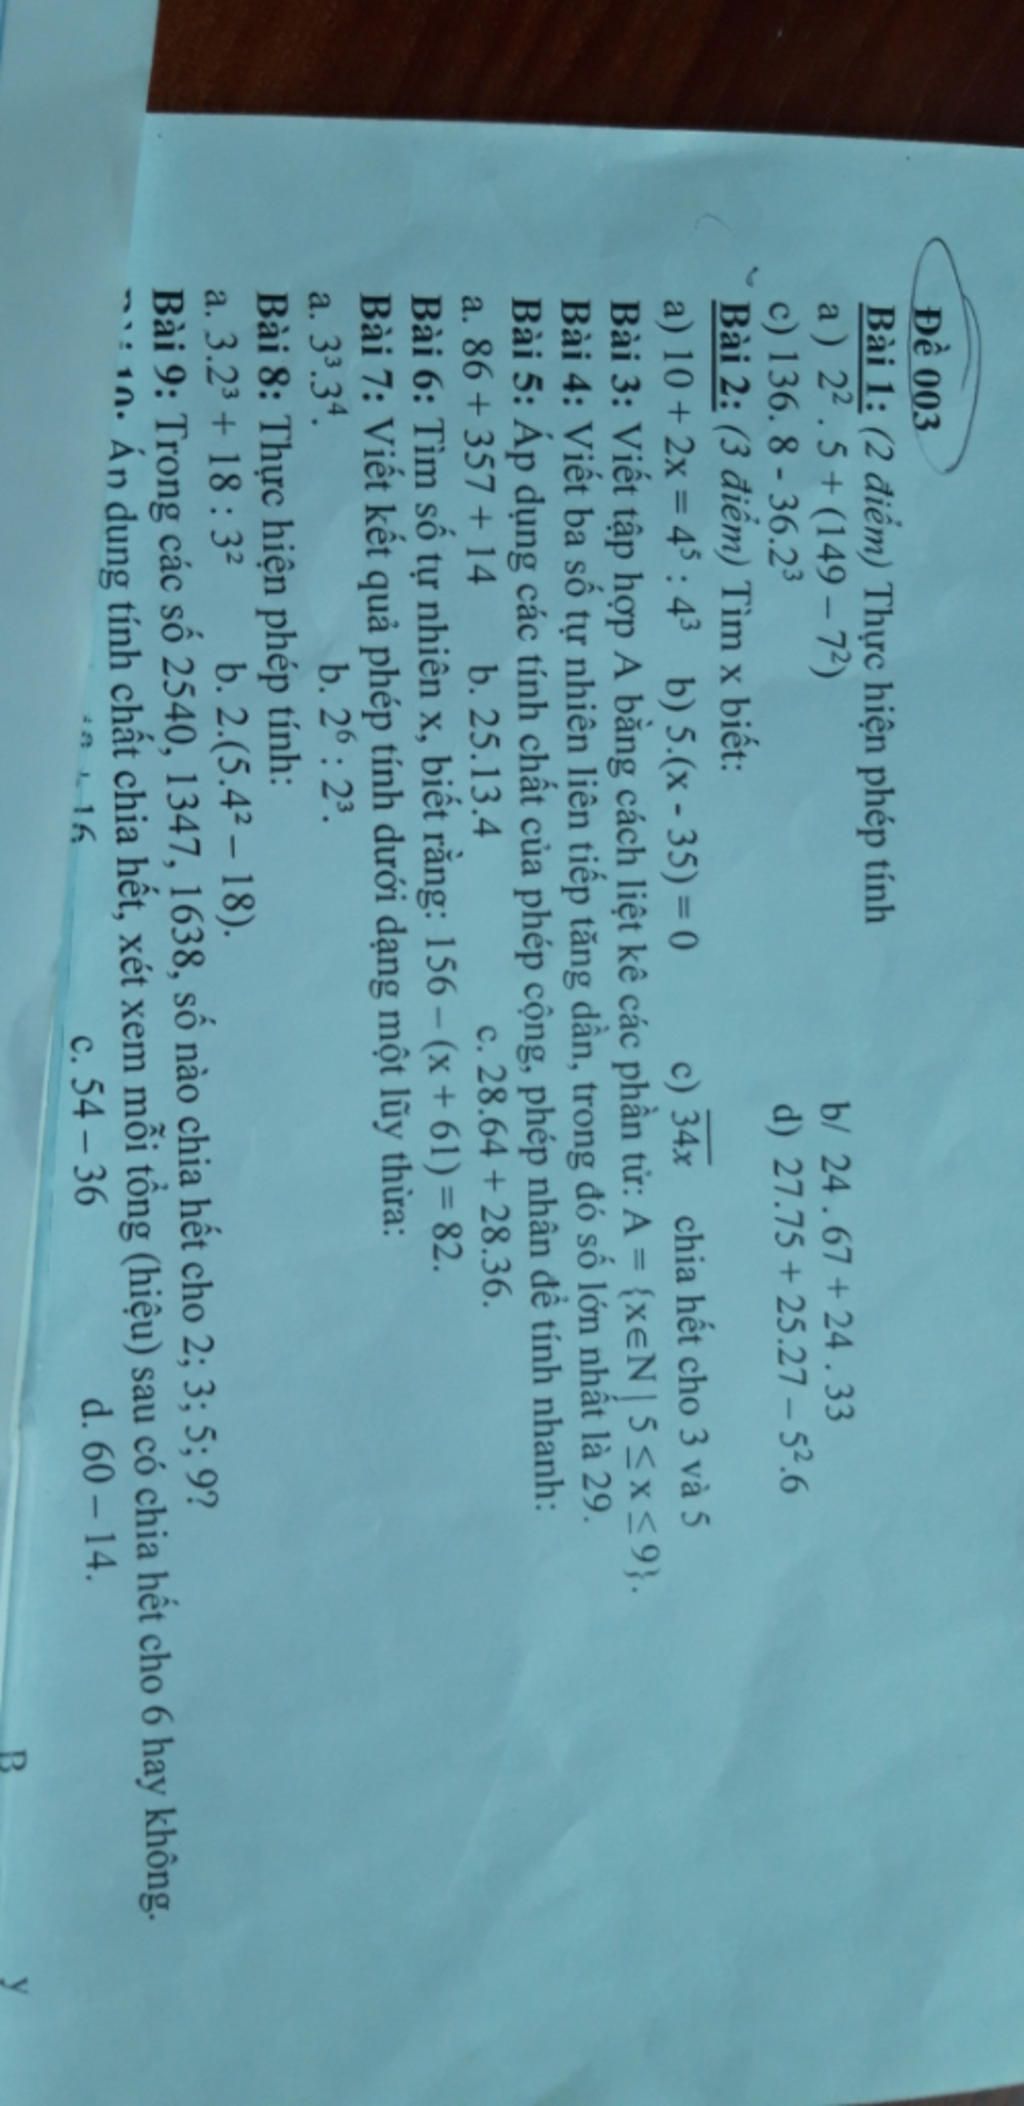 Đề 003
Bài 1: (2 điểm) Thực hiện phép tính
a ) 2². 5 + (149 – 7²) b/ 24 . 67 + 24 . 33
c) 136. 8 - 36.2³ d) 27.75 + 25.27 – 5².6
Bài 2: (3 điểm) Tìm x biết:
a) 10 + 2x = 4⁵ : 4³ b) 5.(x - 35) = 0 c) 34x chia hết cho 3 và 5
Bài 3: Viết tập hợp A bằng cách liệt kê các phần tử: A = {x∈N | 5 ≤ x ≤ 9}.
Bài 4: Viết ba số tự nhiên liên tiếp tăng dần, trong đó số lớn nhất là 29.
Bài 5: Áp dụng các tính chất của phép cộng, phép nhân để tính nhanh:
a. 86 + 357 + 14 b. 25.13.4 c. 28.64 + 28.36.
Bài 6: Tìm số tự nhiên x, biết rằng: 156 – (x + 61) = 82.
Bài 7: Viết kết quả phép tính dưới dạng một lũy thừa:
a. 3³.3⁴. b. 2⁶ : 2³.
Bài 8: Thực hiện phép tính:
a. 3.2³ + 18 : 3² b. 2.(5.4² – 18).
Bài 9: Trong các số 2540, 1347, 1638, số nào chia hết cho 2; 3; 5; 9?
10: Áp dụng tính chất chia hết, xét xem mỗi tổng (hiệu) sau có chia hết cho 6 hay không.
+ 16 c. 54 – 36 d. 60 – 14.
B y